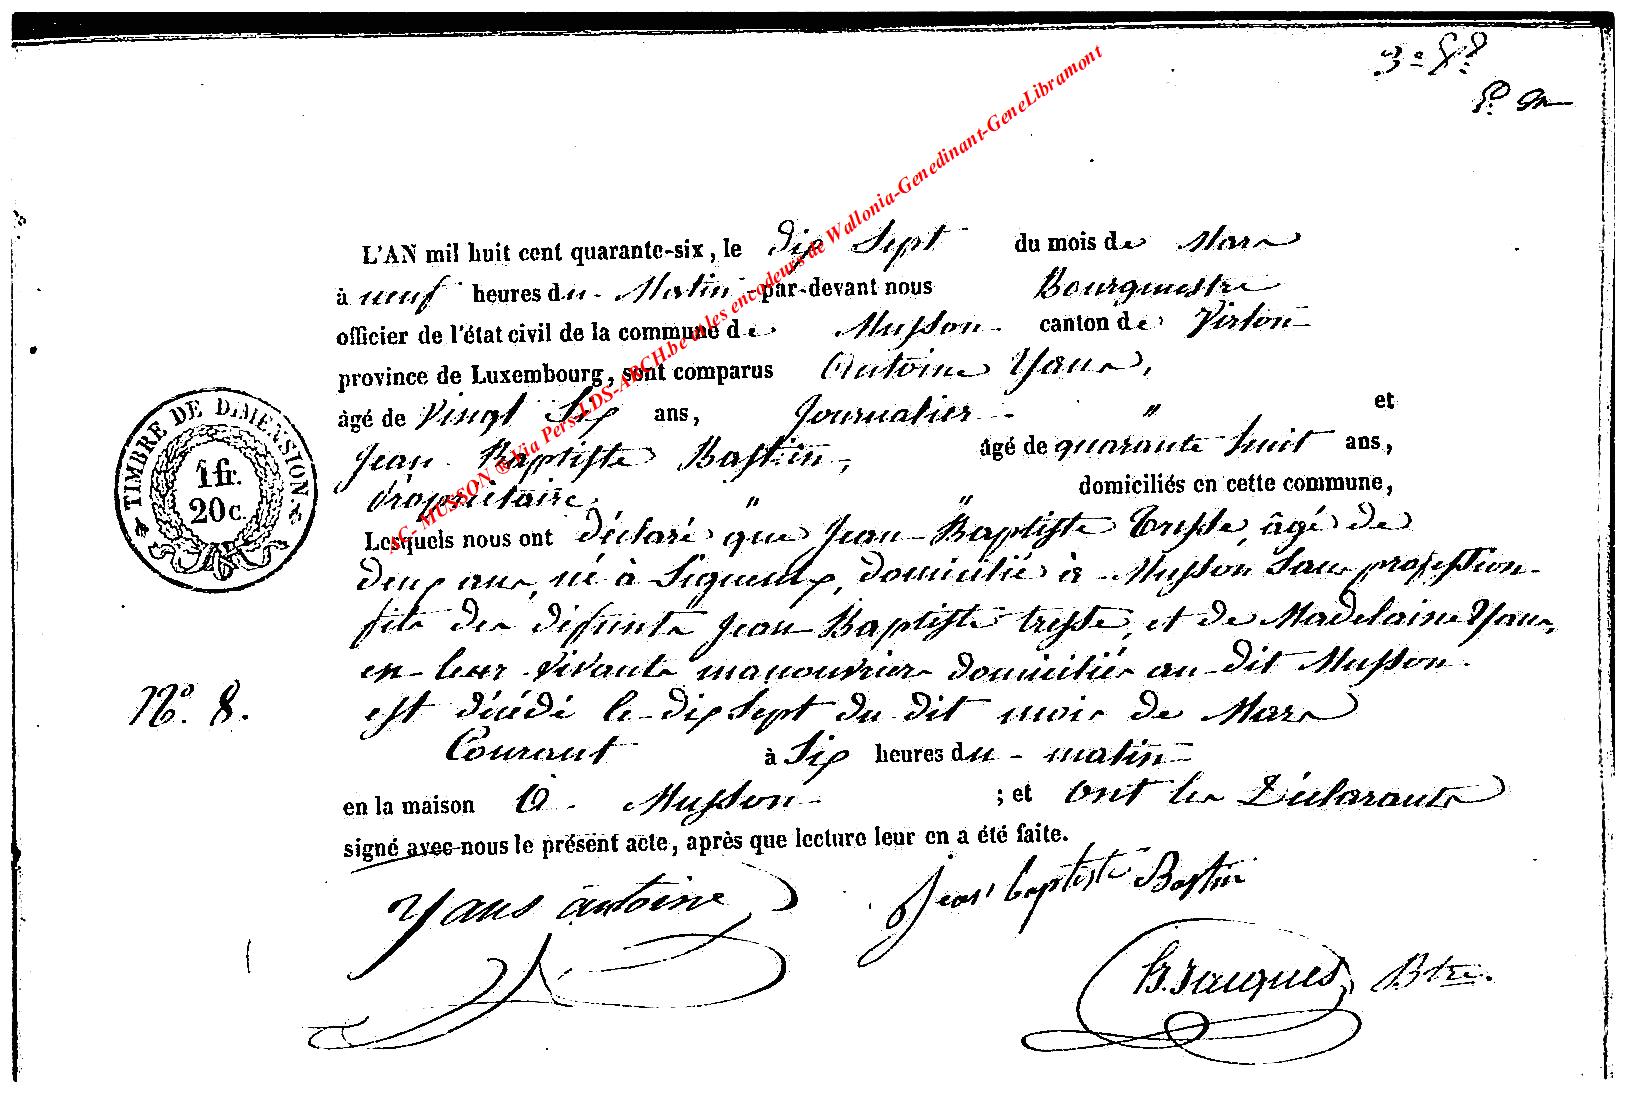 3e 8e
AC- MUSSON ® Via Pers-LDS-ARCH.be et les encodeurs de Wallonia-Genedinant-GeneLibramont
L'AN mil huit cent quarante-six, le dix sept du mois de Mars
à neuf heures du Matin par-devant nous Bourgmestre
officier de l'état civil de la commune de Musson canton de Virton
province de Luxembourg, sont comparus Antoine Yans,
âgé de Vingt Six ans, Journalier " et
Jean Baptiste Bastin, âgé de quarante huit ans,
propriétaire, " " domiciliés en cette commune,
Lesquels nous ont déclaré que Jean Baptiste Tresse, âgé de
deux ans, né à Signeulx, domicilié à Musson Sans profession
fils des défunts Jean Baptiste tresse, et de Madelaine Yans,
en leur vivants manouvriers domiciliés au dit Musson
est décédé le dix Sept du dit mois de Mars
Courant à Six heures du matin
en la maison à Musson ; et ont les Déclarants
signé avec nous le présent acte, après que lecture leur en a été faite.
TIMBRE DE DIMENSION.
1 fr.
20 c.
No. 8.
Yans antoine Jean baptiste Bastin
Jacques Btre.